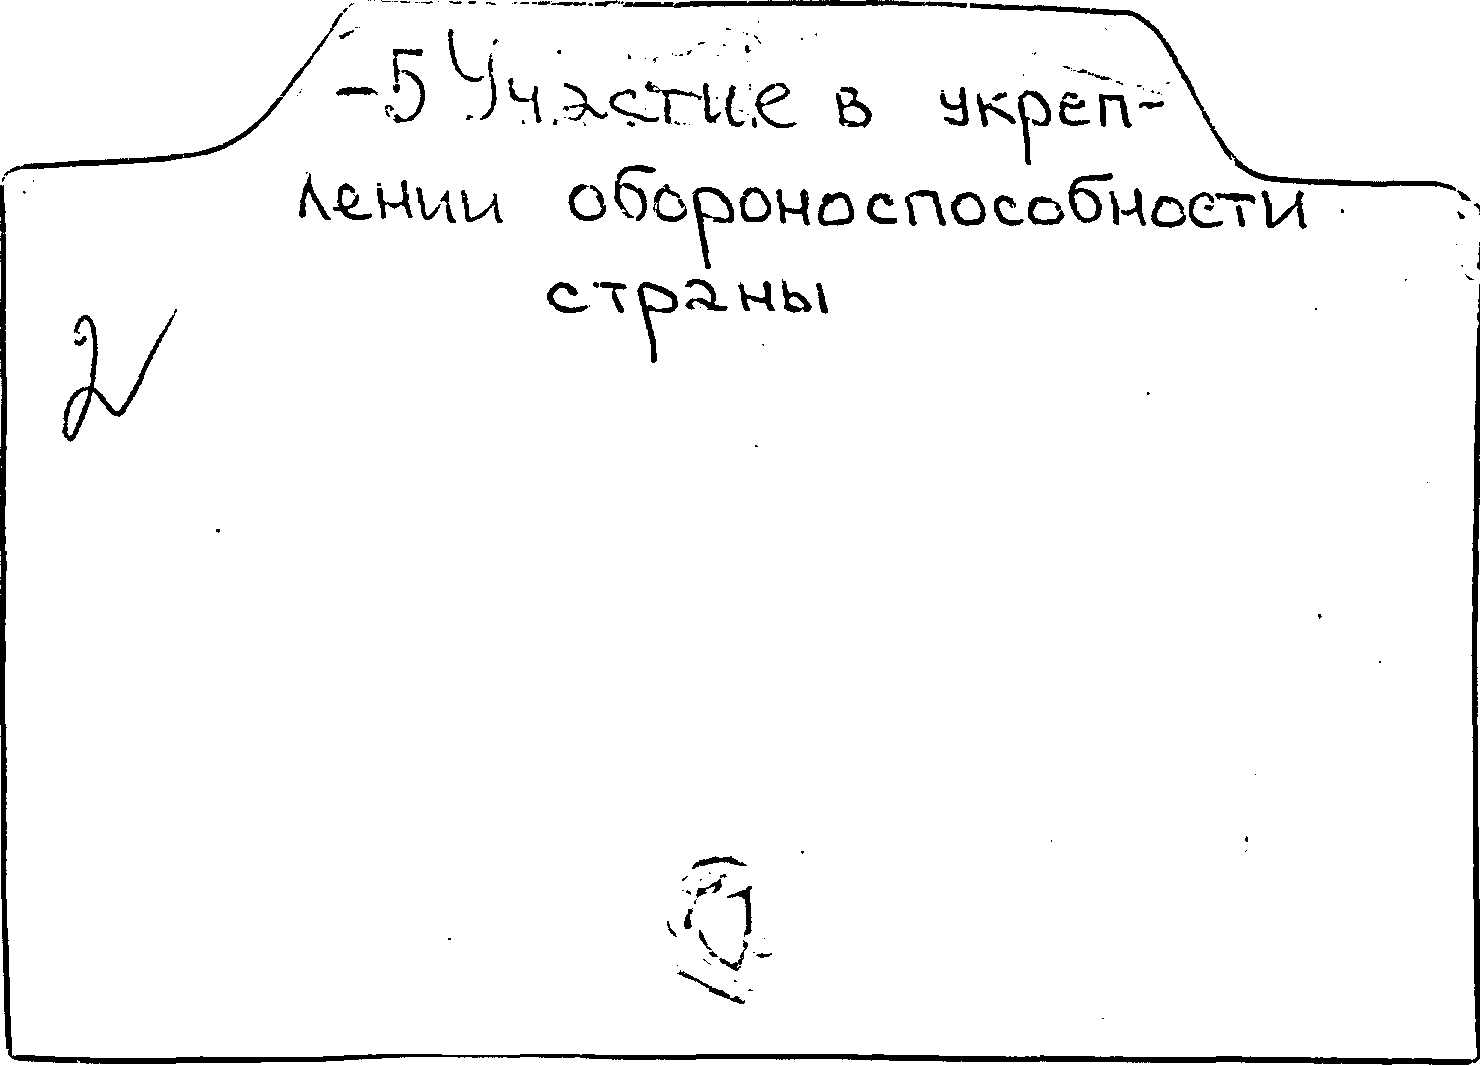 -5 Участие в укреп-
лении обороноспособности
страны
2